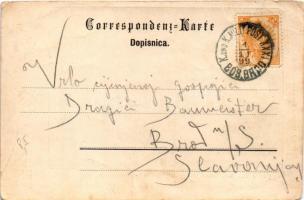 Correspondenz-Karte
Dopisnica.
K. UND K. MILIT. POST
BOS. BROD
99
Vrlo cijenjenoj gospojici
Dragici Baumeister
Brod n/S.
Slavonija